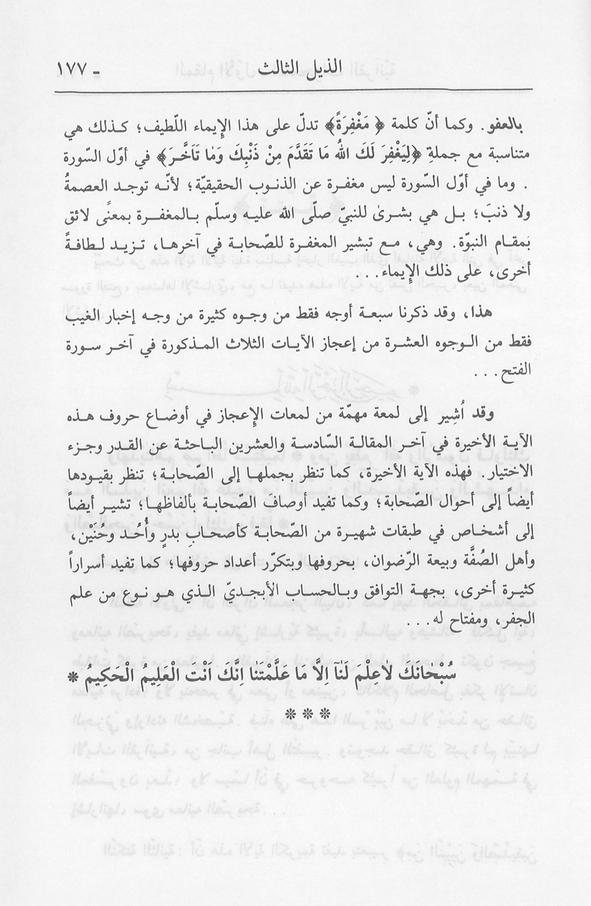 الذيل الثالث ـ ١٧٧
بالعفو. وكما أنّ كلمة ﴿ مَغْفِرَةً﴾ تدلّ على هذا الإيماء اللّطيف؛ كـذلك هي
متناسبة مع جملةِ ﴿لِيَغْفِرَ لَكَ اللهُ مَا تَقَدَّمَ مِنْ ذَنْبِكَ وَمَا تَاَخَّرَ﴾ في أوّل السّورة
. وما في أوّل السّورة ليس مغفرة عن الذنوب الحقيقيّة؛ لأنّـه توجـد العصمةُ
ولا ذنبَ؛ بـل هي بشـرىٰ للنبيّ صلّى الله عليـه وسلّم بـالمغفـرة بمعنًى لائق
بمَقـام النبوّة. وهي، مـع تبشير المغفـرة للصّحابـة في آخرهـا، تـزيـد لـطافـةً
أخرى، على ذلك الإيماء. . .
هذا، وقد ذكرنا سبعـة أوجه فقط من وجـوه كثيرة من وجـه إخبار الغيب
فقط من الـوجوه العشـرة من إعجاز الآيـات الثلاث المـذكورة في آخـر سورة
الفتح. . .
وقد أُشِير إلى لمعة مهمّة من لمعات الإِعجاز في أوضاع حروف هـذه
الآيـة الأخيرة في آخـر المقالـة السّادسـة والعشرين البـاحثة عن القـدر وجـزء
الاختيار. فهذه الآية الأخيرة، كما تنظر بجملها إلى الصّحابة؛ تنظر بقيودها
أيضاً إلى أحوال الصّحابة؛ وكما تفيد أوصافَ الصّحابة بألفاظها؛ تشيـر أيضاً
إلى أشخـاص في طبقات شهيـرة من الصّحابـة كأصحـاب بدرٍ وأُحُـد وحُنَيْن،
وأهل الصُفَّة وبيعة الرِّضوان، بحروفها وبتكرّر أعداد حروفها؛ كما تفيد أسراراً
كثيـرة أخرى، بجهـة التوافق وبـالحساب الأبجـديّ الـذي هـو نـوع من علم
الجفر، ومفتاح له. . .
سُبْحَانَكَ لاَعِلْمَ لَنَآ اِلاَّ مَا عَلَّمْتَنَا اِنَّكَ اَنْتَ الْعَلِيمُ الْحَكِيمُ *
* * *